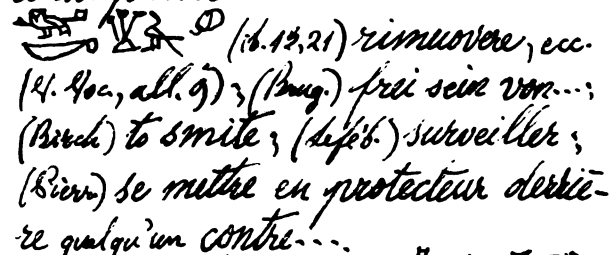 (ib. 12, 21) rimuovere, ecc.
(V. Voc., all. 9); (Brug.) frei sein von...;
(Birch) to smite; (Lefeb.) surveiller;
(Pierr.) se mettre en protecteur derriè-
re quelqu'un contre....